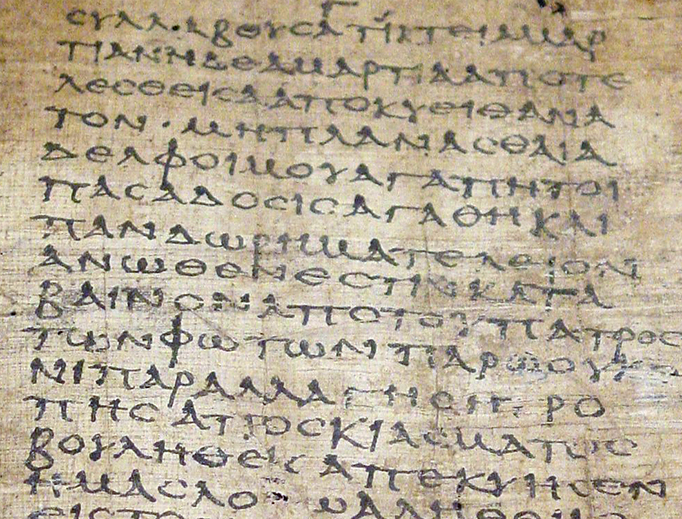 ϹΥΛΛΑΒΟΥϹΑΤΙΚΤΕΙΑΜΑΡ
ΤΙΑΝΗΔΕΑΜΑΡΤΙΑΑΠΟΤΕ
ΛΕϹΘΕΙϹΑΑΠΟΚΥΕΙΘΑΝΑ
ΤΟΝ·ΜΗΠΛΑΝΑϹΘΑΙΑ
ΔΕΛΦΟΙΜΟΥΑΓΑΠΗΤΟΙ
ΠΑϹΑΔΟϹΙϹΑΓΑΘΗΚΑΙ
ΠΑΝΔΩΡΗΜΑΤΕΛΕΙΟΝ
ΑΝΩΘΕΝΕϹΤΙΝΚΑΤΑ
ΒΑΙΝΟΝΑΠΟΤΟΥΠΑΤΡΟϹ
ΤΩΝΦΩΤΩΝΠΑΡΩΟΥΚΕ
ΝΙΠΑΡΑΛΛΑΓΗϹΗΤΡΟ
ΠΗϹΑΠΟϹΚΙΑϹΜΑΤΟϹ
ΒΟΥΛΗΘΕΙϹΑΠΕΚΥΗϹΕΝ
ΗΜΑϹΛΟ